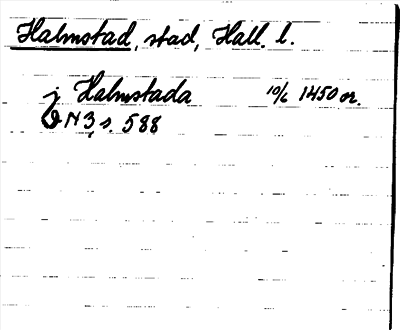 Halmstad, stad, Hall. l.
j Halmstada 10/6 1450 or.
ÖN3, s. 588